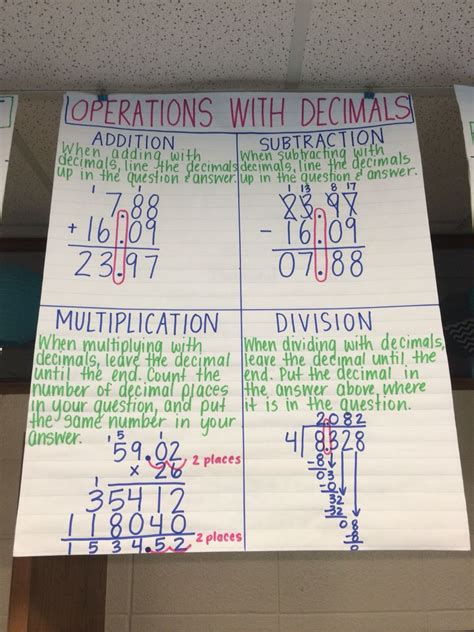 OPERATIONS WITH DECIMALS
ADDITION
When adding with
decimals, line the decimals
up in the question & answer.
1
7.88
+ 16.09
23.97
SUBTRACTION
When subtracting with
decimals, line the decimals
up in the question & answer.
1 13 8 17
23.97
- 16.09
07.88
MULTIPLICATION
When multiplying with
decimals, leave the decimal
until the end. Count the
number of decimal places
in your question, and put
the same number in your
answer.
1 5 1
59.02 2 places
x 26
35412
118040
1534.52 2 places
DIVISION
When dividing with decimals,
leave the decimal until the
end. Put the decimal in
the answer above where
it is in the question.
2.082
4 8.328
- 8
03
- 0
32
32
0 8
8
0